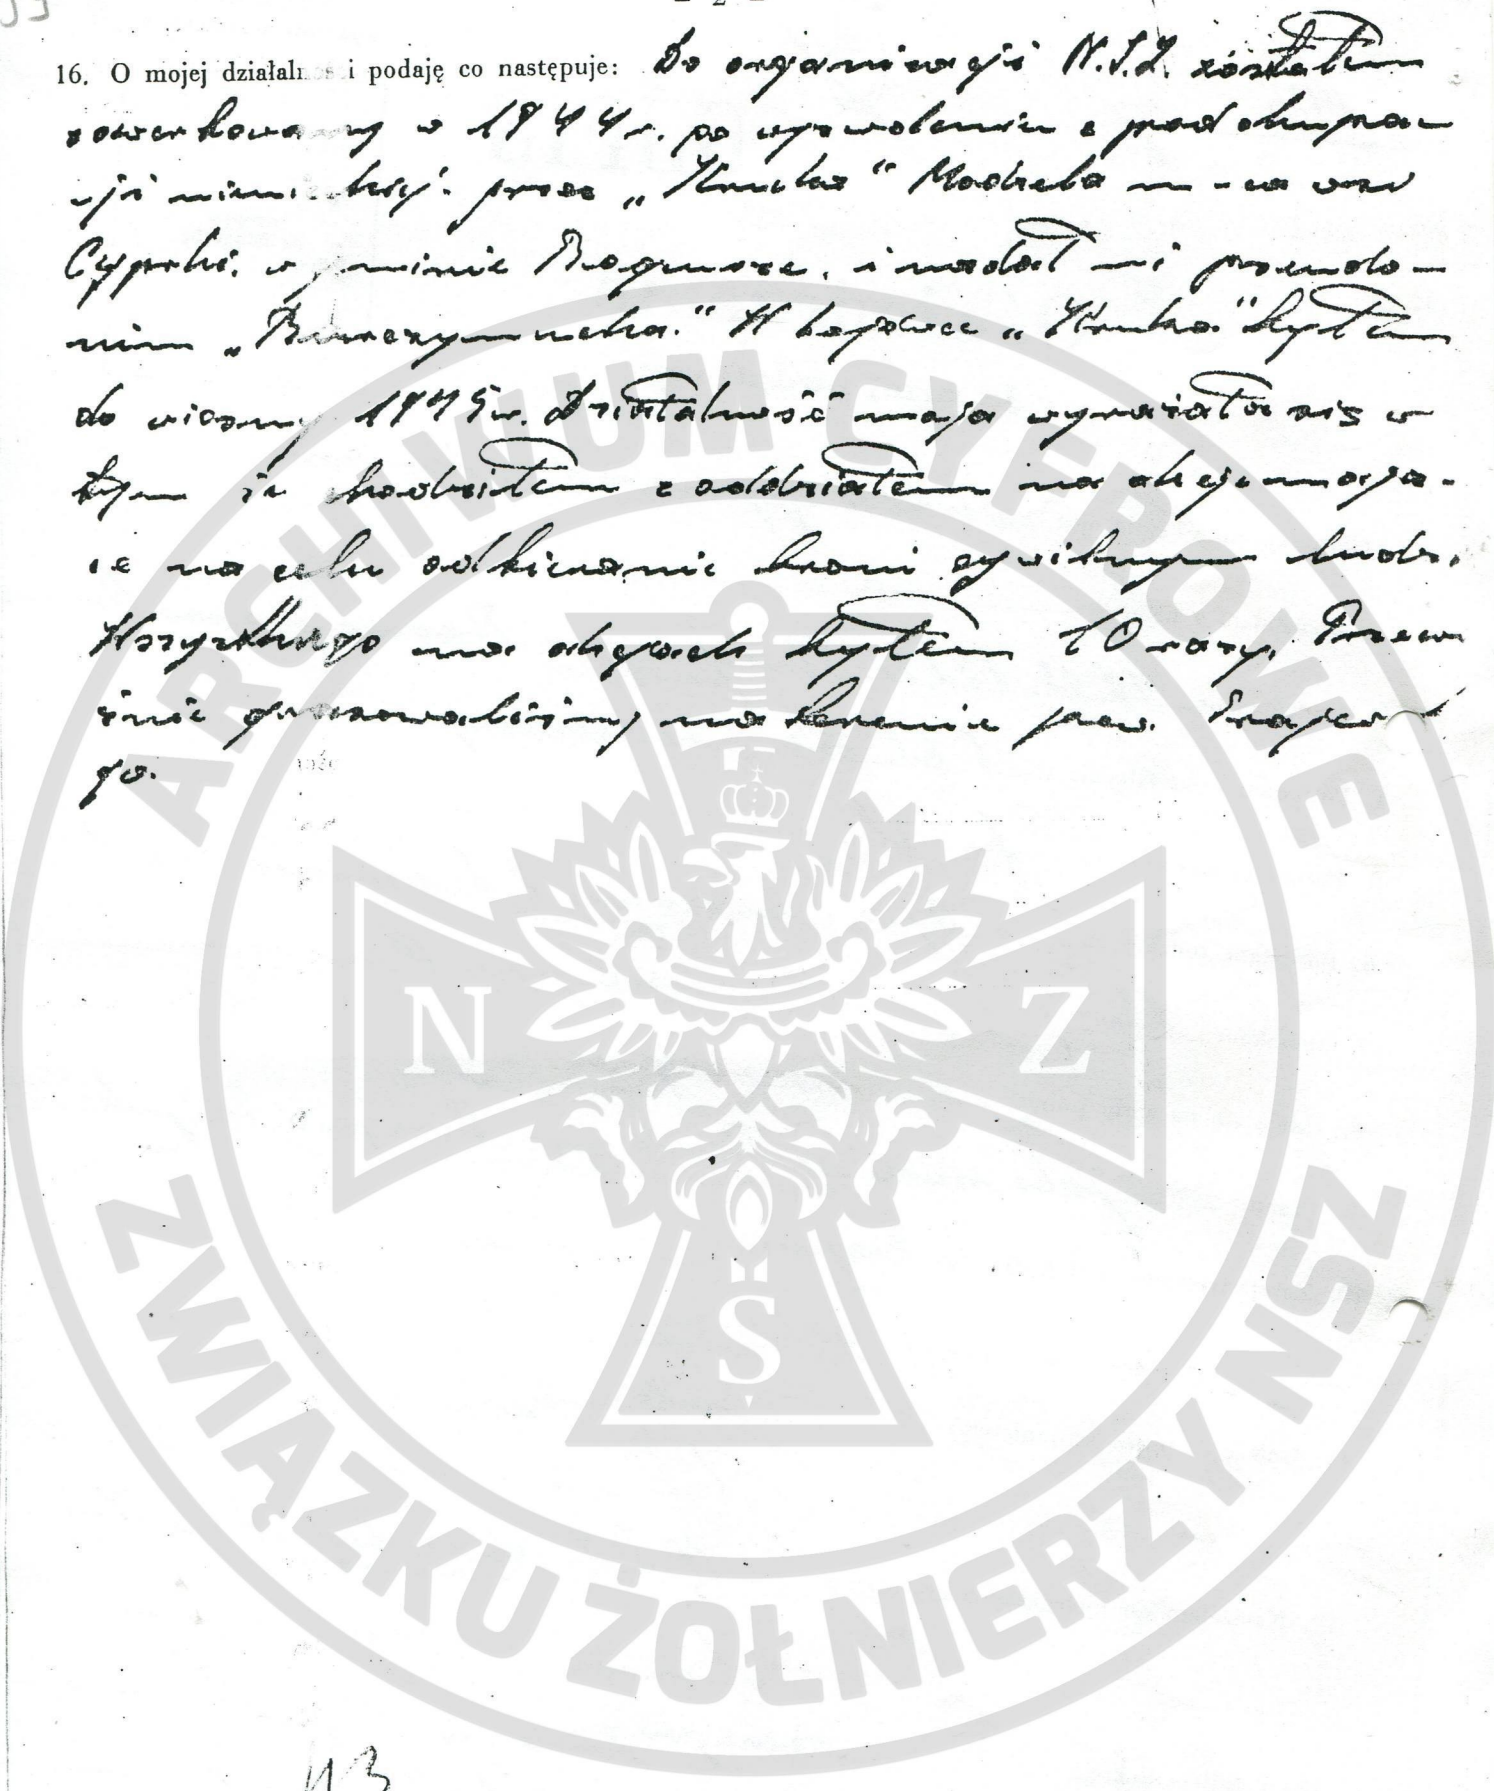 — 2 —
16. O mojej działalności podaję co następuje: Do organizacji N.S.Z. zostałem
zowerbowany w 1944 r. po wyzwoleniu z pod okupac
cji niemieckiej. przez „Kruka” m-ca wsi
w gminie i nadał mi pseudo-
nim W bojówce „Kruka” byłem
do wiosny 1945 r. Działalność moja wyrażała się w
tym że chodziłem z oddziałem na akcje mają-
ce na celu odbieranie broni cywilnym ludz.
Wszystkiego na akcjach byłem 10 razy.
na terenie pow.
go.
ARCHIWUM CYFROWE
ZWIĄZKU ŻOŁNIERZY NSZ
N Z
S
43